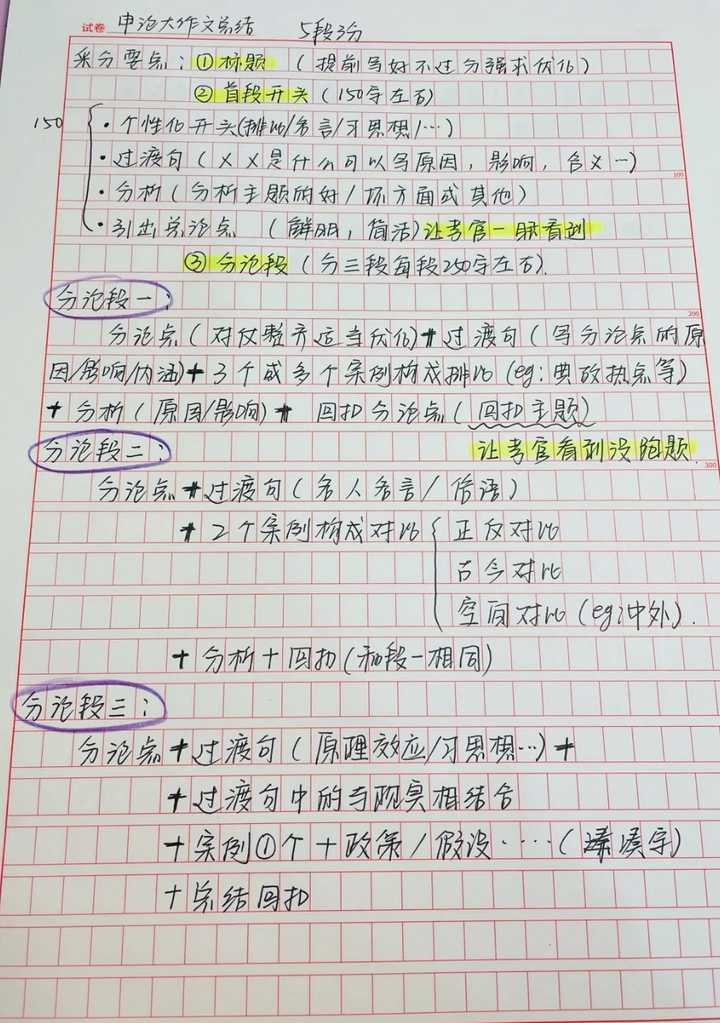 试卷 申论大作文总结 5段3分
采分要点：①标题（提前写好不过分强求优化）
②首段开头（150字左右）
150
·个性化开头(排比/名言/习思想/…)
·过渡句（××是什么可以写原因，影响，含义…）
100
·分析（分析主题的好/坏方面或其他）
·引出总论点（鲜明，简洁)让考官一眼看到
③分论段（分三段每段250字左右).
分论段一：
200
分论点（对仗整齐适当优化)+过渡句（写分论点的原
因/影响/内涵)+3个或多个案例构成排比(eg:典故热点等)
+分析（原因/影响)+回扣分论点(回扣主题)
分论段二： 让考官看到没跑题.
300
分论点+过渡句（名人名言/俗语）
+2个案例构成对比{正反对比
古今对比
空间对比(eg:中外).
+分析+回扣(和段一相同)
分论段三：
分论点+过渡句（原理效应/习思想…)+
+过渡句中的与现实相结合
+案例①个+政策/假设····(凑字)
+总结回扣